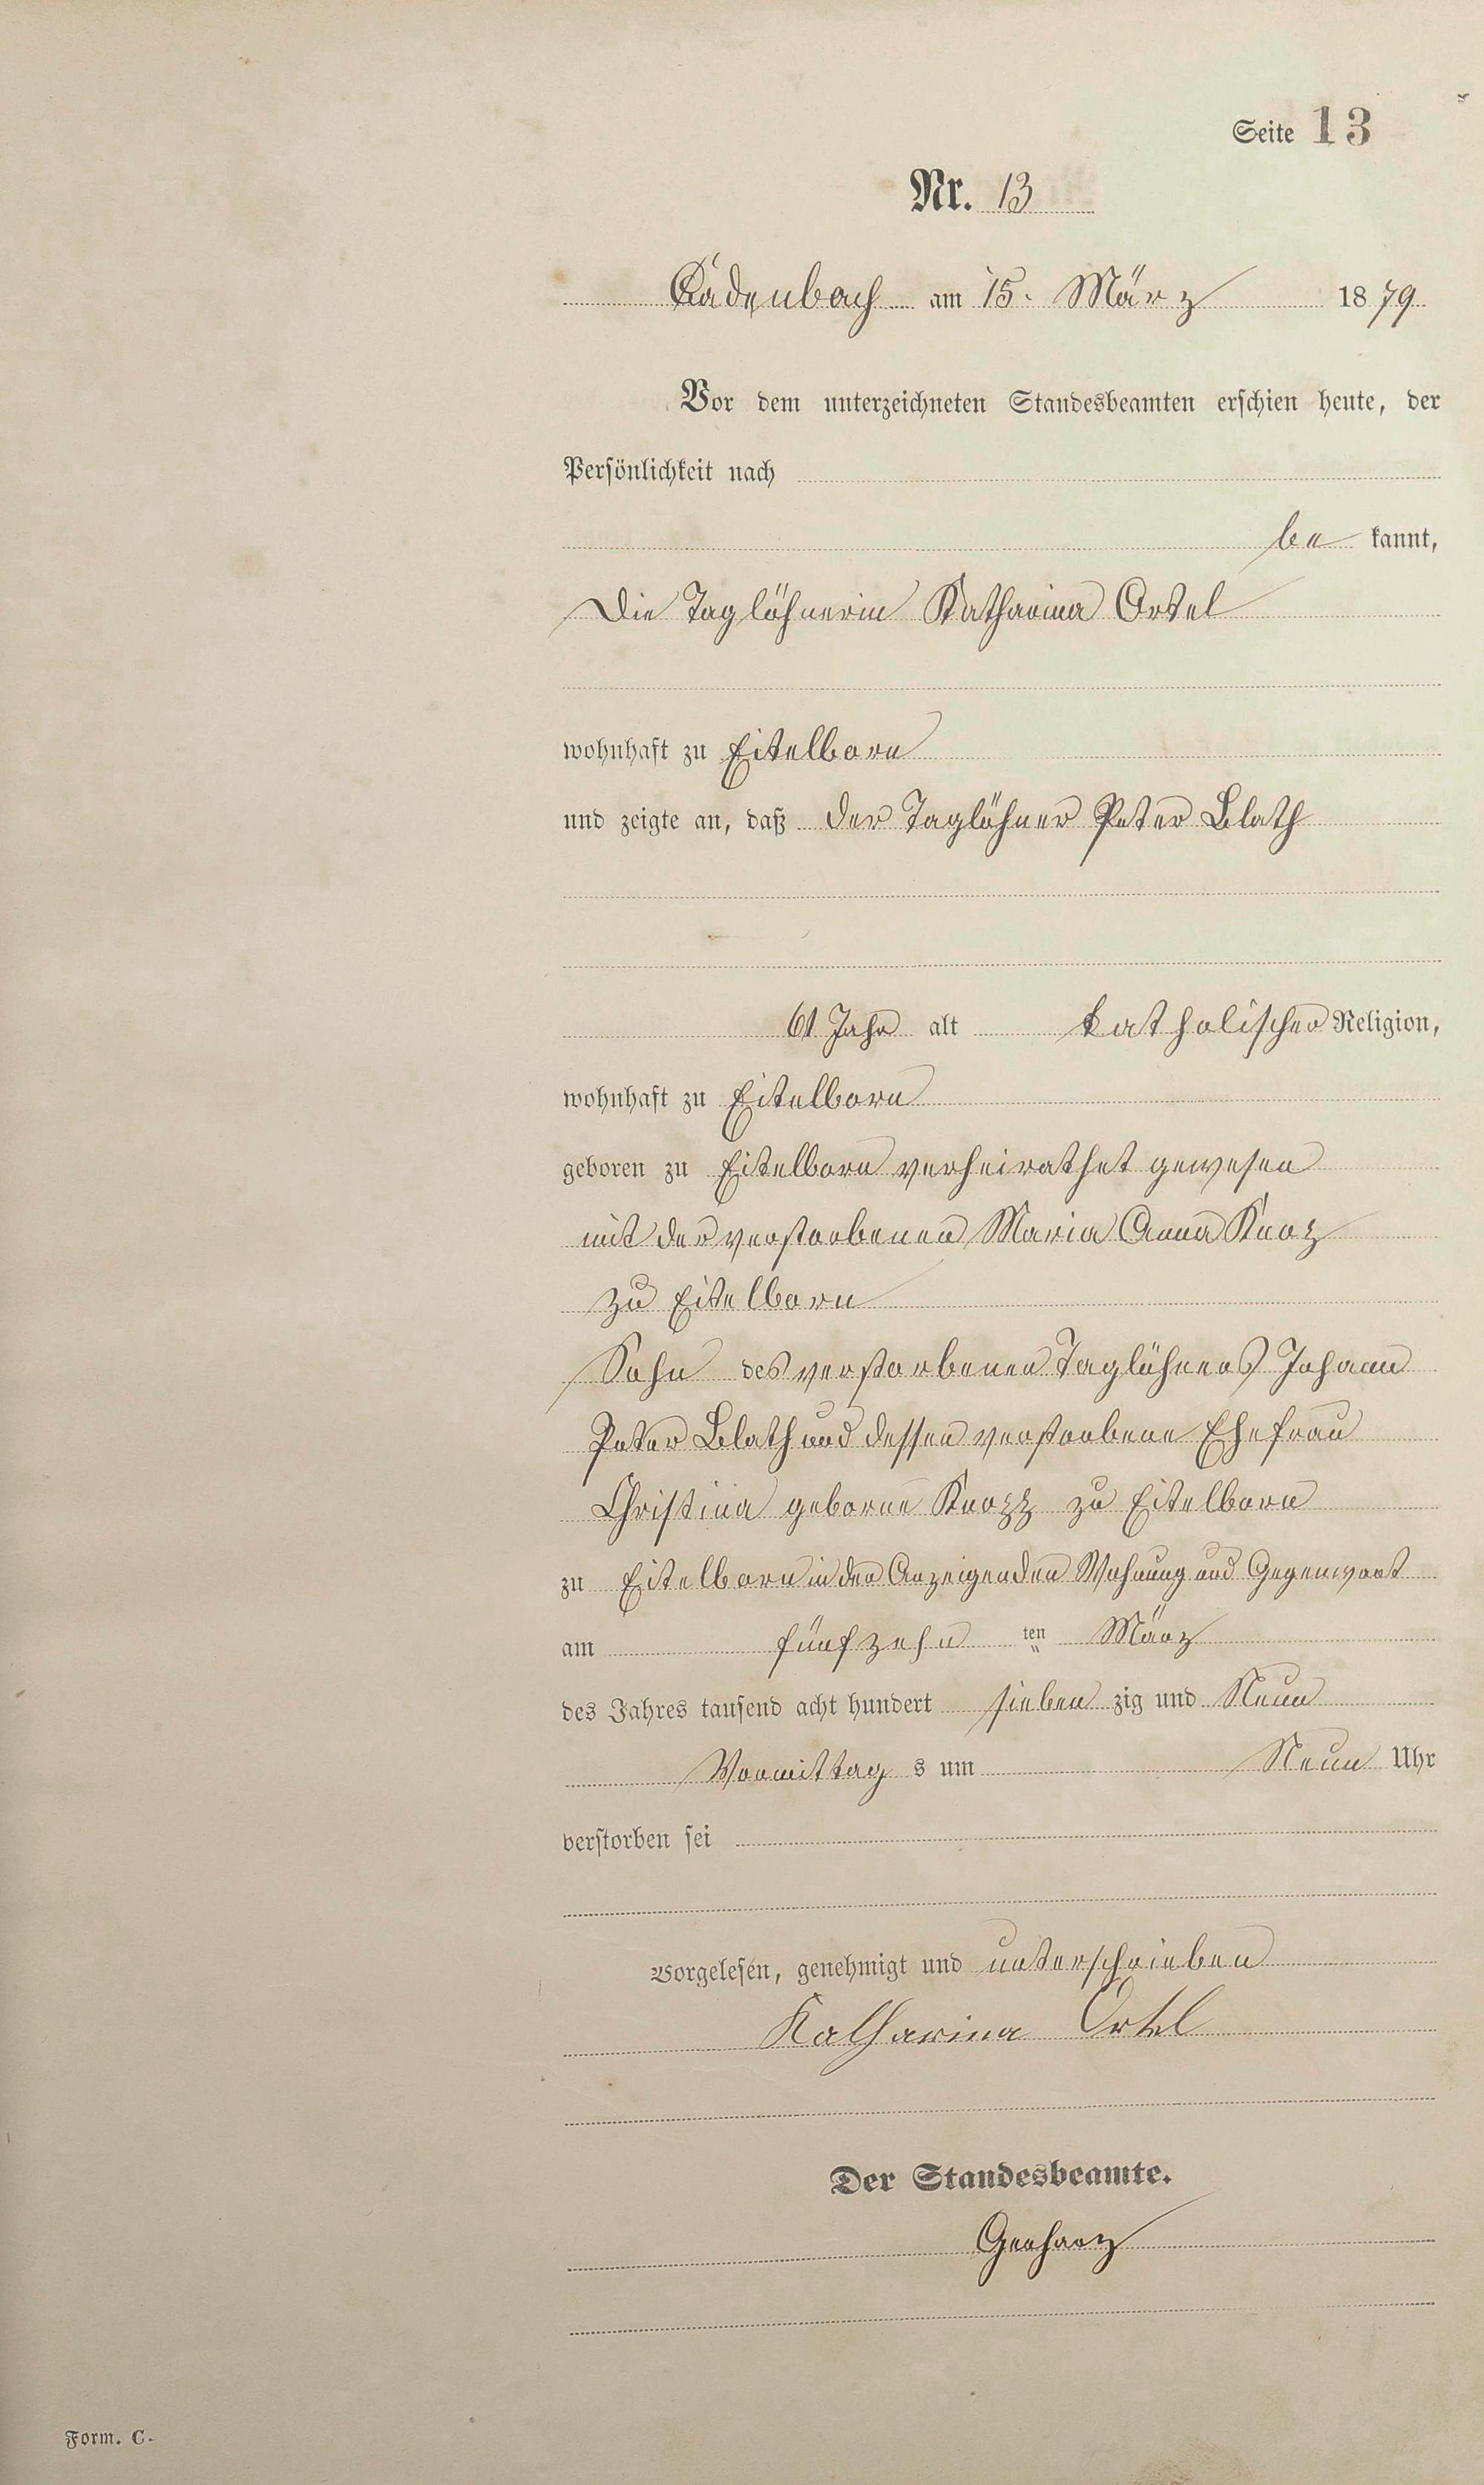 Seite 13
Nr. 13
Kadenbach am 15. März 1879
Vor dem unterzeichneten Standesbeamten erschien heute, der
Persönlichkeit nach
be kannt,
Die Taglöhnerin Katharina Ortel
wohnhaft zu Eitelborn
und zeigte an, daß der Taglöhner Peter Blath
61 Jahr alt katholischer Religion,
wohnhaft zu Eitelborn
geboren zu Eitelborn verheirathet gewesen
mit der verstorbenen Maria Anna
zu Eitelborn
Sohn des verstorbenen Taglöhners Johann
Peter Blath und dessen verstorbene Ehefrau
Christina geborne zu Eitelborn
zu Eitelborn in der Anzeigenden Wohnung und Gegenwart
am fünfzehn ten März
des Jahres tausend acht hundert sieben zig und Neun
Vormittag s um Neun Uhr
verstorben sei
Vorgelesen, genehmigt und unterschrieben
Katharina Ortel
Der Standesbeamte.
Gerharz
Form. C.